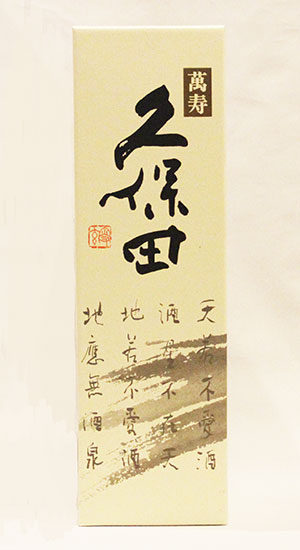 萬寿
久保田
天若不愛酒
酒星不在天
地若不愛酒
地應無酒泉